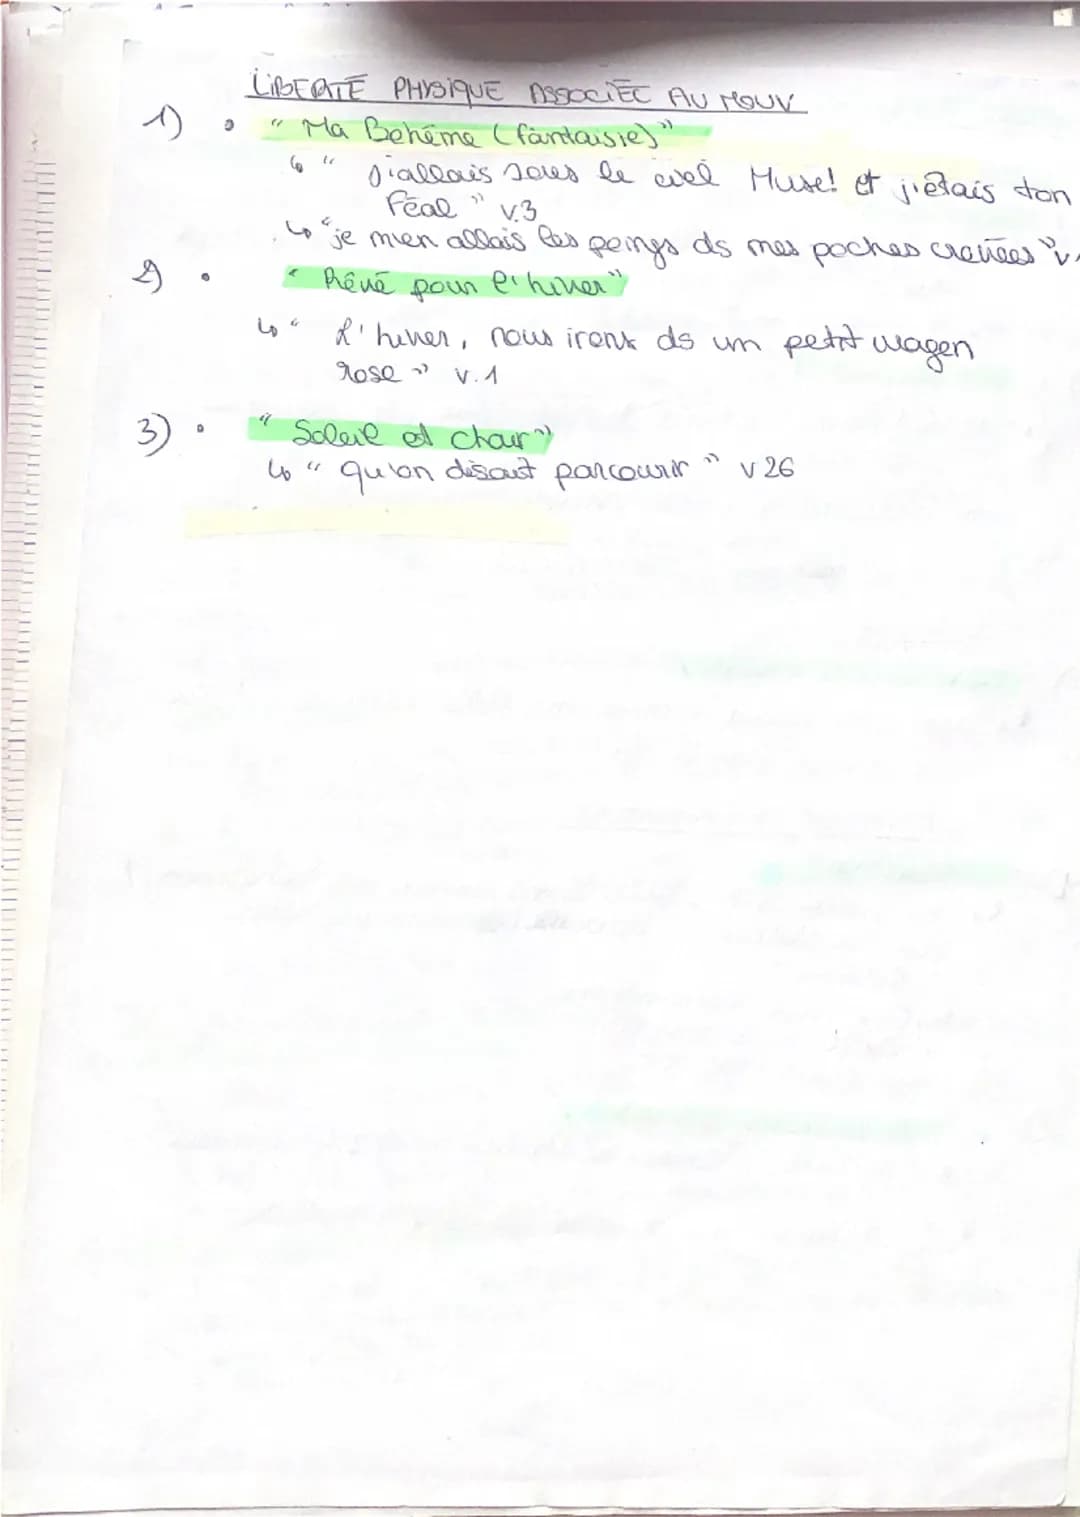 LIBERTÉ PHYSIQUE ASSOCIÉE AU MOUV
1) • "Ma Bohême (fantaisie)"
↳ "j'allais sous le ciel Muse! et j'étais ton
féal" v.3
↳ "je m'en allais les poings ds mes poches crevées" v.
2) • "Rêvé pour l'hiver"
↳ "L'hiver, nous irons ds un petit wagon
rose" v.1
3) • "Soleil et chair"
↳ "qu'on disait parcourir" v 26